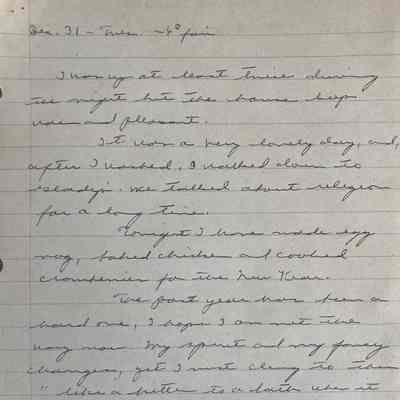 Dec. 31 - Tues. -4° fair
I was up at least twice during
the night but the house kept
warm and pleasant.
It was a very lovely day, and,
after I washed, I walked down to
We talked about religion
for a long time.
Tonight I have made egg
nog, baked chicken and cooked
cranberries for the New Year.
The past year has been a
hard one, I hope I am not the
way now. My spirit and my
changes, yet I must cling to them
" like a to a when it